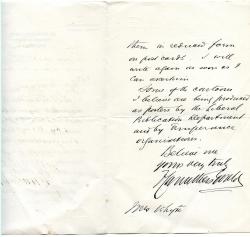 them in reduced form
on post cards. I will
write again as soon as I
can ascertain
Some of the cartoons
I believe are being produced
as posters by the Liberal
Publication Department
and by Temperance
organisations.
Believe me
yours very truly
Whyte